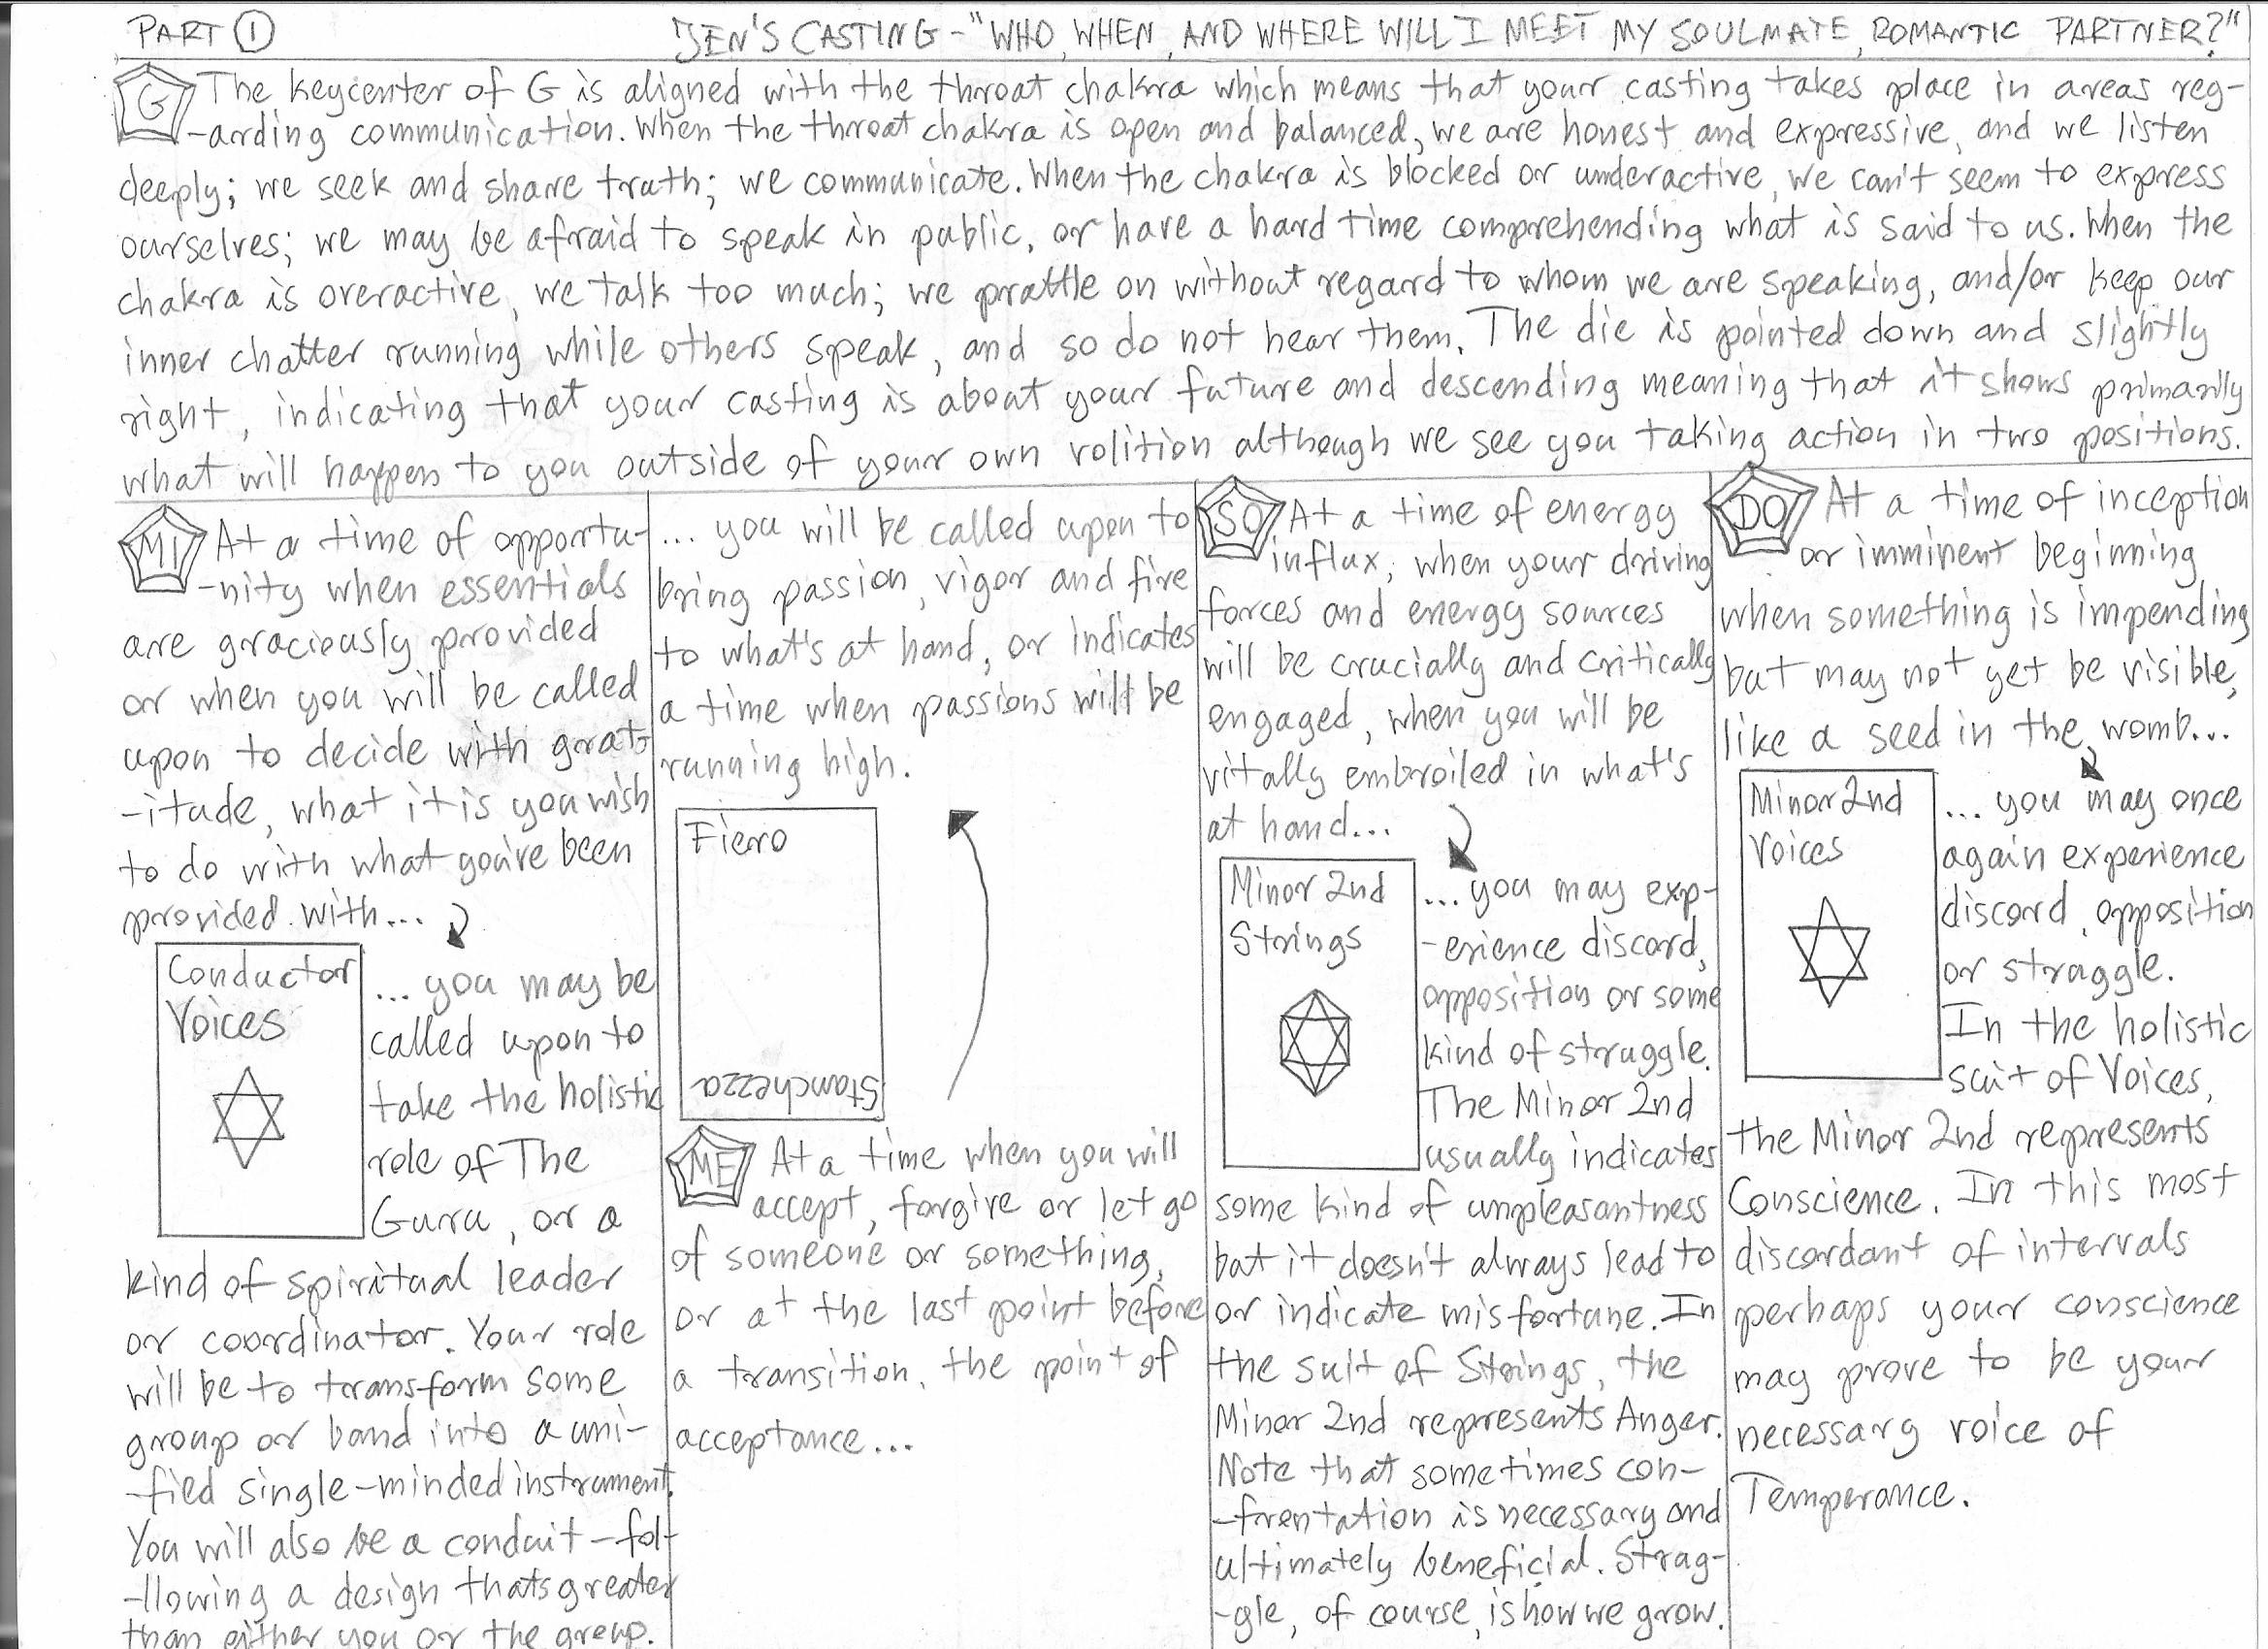 PART 1
JEN'S CASTING - "WHO, WHEN, AND WHERE WILL I MEET MY SOULMATE, ROMANTIC PARTNER?"
G The keycenter of G is aligned with the throat chakra which means that your casting takes place in areas reg-
-arding communication. When the throat chakra is open and balanced, we are honest and expressive, and we listen
deeply; we seek and share truth; we communicate. When the chakra is blocked or underactive, we can't seem to express
ourselves; we may be afraid to speak in public, or have a hard time comprehending what is said to us. When the
chakra is overactive, we talk too much; we prattle on without regard to whom we are speaking, and/or keep our
inner chatter running while others speak, and so do not hear them. The die is pointed down and slightly
right, indicating that your casting is about your future and descending meaning that it shows primarily
what will happen to you outside of your own volition although we see you taking action in two positions.
MI At a time of opportu-
-nity when essentials
are graciously provided
or when you will be called
upon to decide with grat-
-itude, what it is you wish
to do with what you've been
provided with...
Conductor
Voices
... you may be
called upon to
take the holistic
role of The
Guru, or a
kind of spiritual leader
or coordinator. Your role
will be to transform some
group or band into a uni-
-fied single-minded instrument.
You will also be a conduit - fol-
-llowing a design thats greater
than either you or the group.
... you will be called upon to
bring passion, vigor and fire
to what's at hand, or indicates
a time when passions will be
running high.
Fiero
Stanchezza
ME At a time when you will
accept, forgive or let go
of someone or something,
or at the last point before
a transition, the point of
acceptance...
SO At a time of energy
influx, when your driving
forces and energy sources
will be crucially and critically
engaged, when you will be
vitally embroiled in what's
at hand...
Minor 2nd
Strings
...you may exp-
-erience discord,
opposition or some
kind of struggle.
The Minor 2nd
usually indicates
some kind of unpleasantness
but it doesn't always lead to
or indicate misfortune. In
the suit of Strings, the
Minor 2nd represents Anger.
Note that sometimes con-
-frontation is necessary and
ultimately beneficial. Strug-
-gle, of course, is how we grow.
DO At a time of inception
or imminent beginning
when something is impending
but may not yet be visible,
like a seed in the womb...
Minor 2nd
Voices
... you may once
again experience
discord, opposition
or struggle.
In the holistic
suit of Voices,
the Minor 2nd represents
Conscience. In this most
discordant of intervals
perhaps your conscience
may prove to be your
necessary voice of
Temperance.